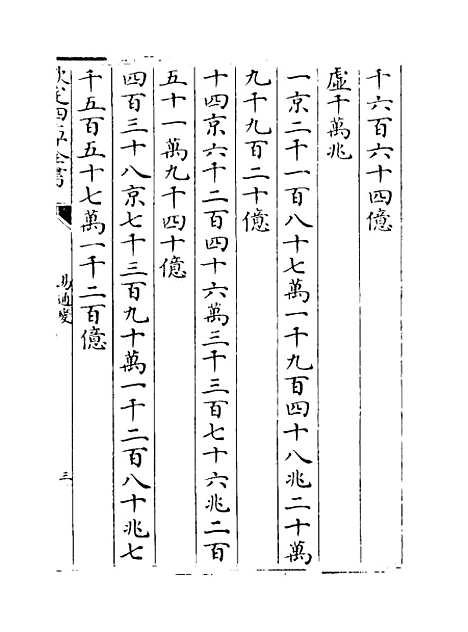 千六百六十四億
虛千萬兆
一京二千一百八十七萬一千九百四十八兆二十萬
九千九百二十億
十四京六千二百四十六萬三千三百七十六兆二百
五十一萬九千四十億
四百三十八京七千三百九十萬一千二百八十兆七
千五百五十七萬一千二百億
欽定四庫全書
易通變
三